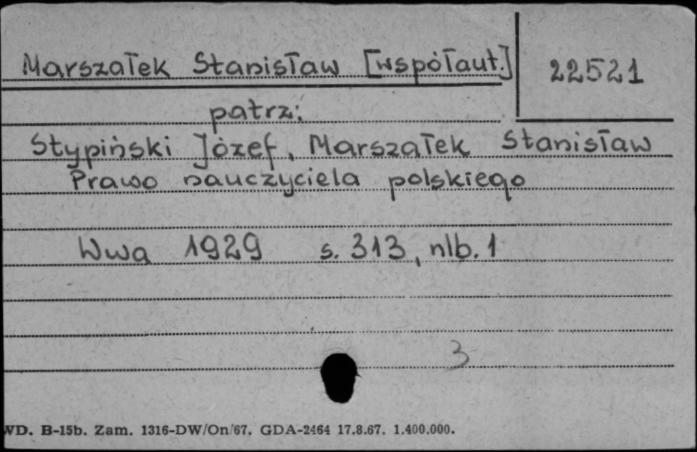 Marszałek Stanisław [współaut.]
22521
patrz:
Stypiński Józef, Marszałek Stanisław
Prawo nauczyciela polskiego
Wwa 1929 s. 313, nlb. 1
3
WD. B-15b. Zam. 1316-DW/On/67. GDA-2464 17.8.67. 1.400.000.